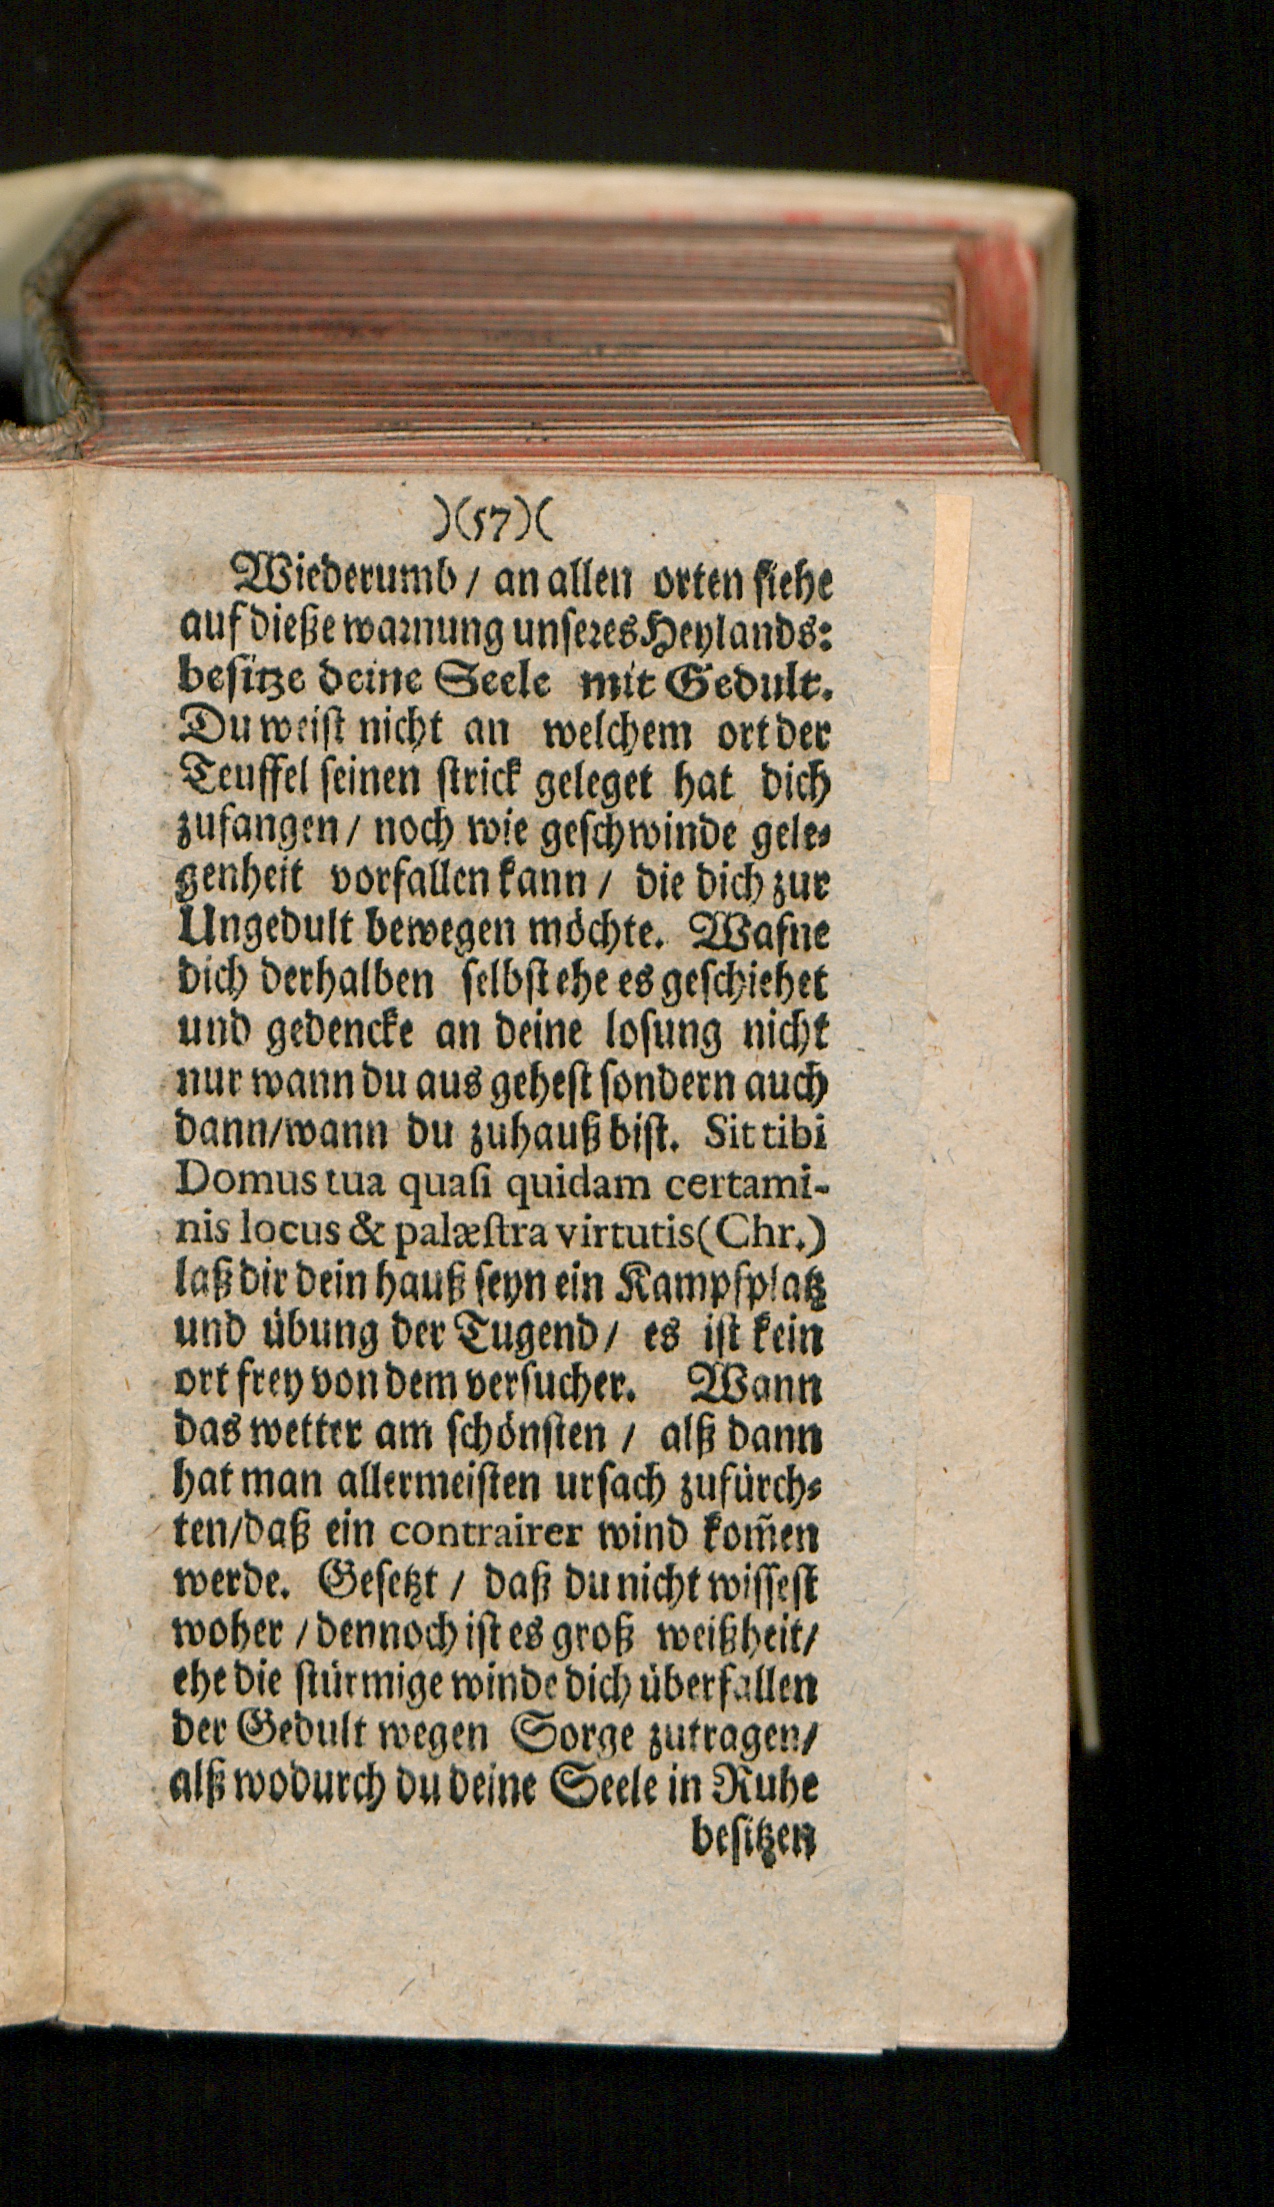 )(57)(
Wiederumb / an allen orten ſiehe
auf dieße warnung unſeres Heylands:
beſitze deine Seele mit Gedult.
Du weiſt nicht an welchem ort der
Teuffel ſeinen ſtrick geleget hat dich
zufangen / noch wie geſchwinde gele⸗
genheit vorfallen kann / die dich zur
Ungedult bewegen möchte. Wafne
dich derhalben ſelbſt ehe es geſchiehet
und gedencke an deine loſung nicht
nur wann du aus geheſt ſondern auch
dann/wann du zuhauß biſt. Sit tibi
Domus tua quaſi quidam certami-
nis locus & palæſtra virtutis (Chr.)
laß dir dein hauß ſeyn ein Kampfplatz
und übung der Tugend / es iſt kein
ort frey von dem verſucher. Wann
das wetter am ſchönſten / alß dann
hat man allermeiſten urſach zufürch⸗
ten/daß ein contrairer wind kom̃en
werde. Geſetzt / daß du nicht wiſſeſt
woher / dennoch iſt es groß weißheit/
ehe die ſtürmige winde dich überfallen
der Gedult wegen Sorge zutragen/
alß wodurch du deine Seele in Ruhe
beſitzen